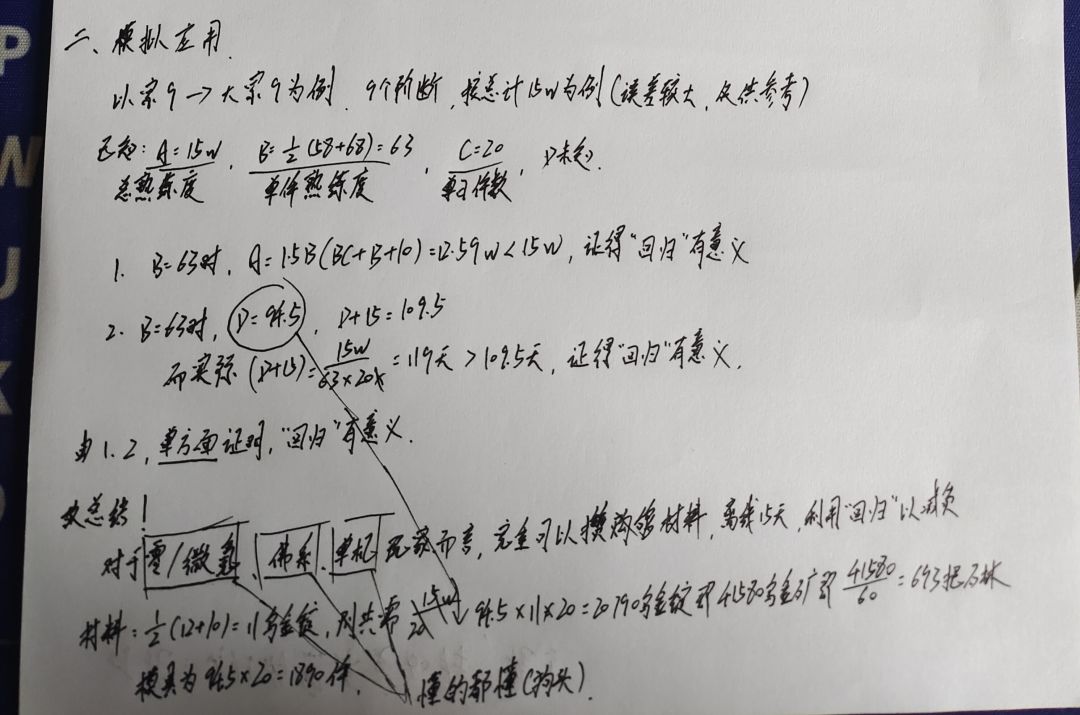 二、模拟应用.
以宗9→大宗9为例, 9个阶断, 按总计15w为例(误差较大, 仅供参考)
已知: A=15w 总熟练度, B=½(58+68)=63 单件熟练度, C=20 单日件数, D未知.
1. B=63时, A=1.5B(BC+B+10)=12.59w<15w, 证得"回归"有意义
2. B=63时, D=94.5, D+15=109.5
而实际(D+15)=15w/63×20=119天>109.5天, 证得"回归"有意义.
由1.2, 单方面证明, "回归"有意义.
故总结!
对于零/微氪、佛系、单机玩家而言, 完全可以攒购够材料, 离线15天, 利用"回归"以减负
材料: ½(12+10)=11乌金锭, 则共需 94.5×11×20=20790乌金锭即41580乌金矿即41580/60=693把石林
模具为94.5×20=1890件. 懂的都懂(狗头).
P
W
U
K